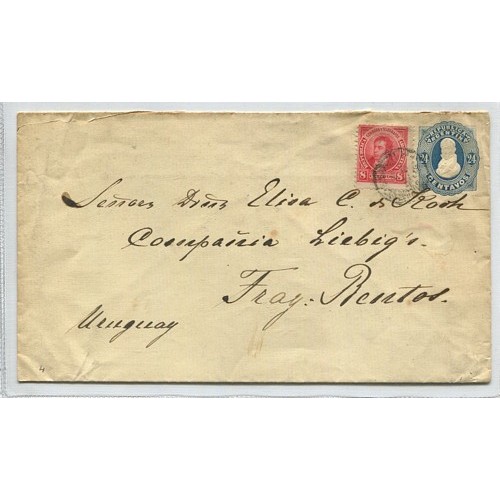 REPUBLICA
ARGENTINA
24 24
CENTAVOS
8 8
Señora Doña Elisa C. de
Compañia Liebig's.
Fray-Bentos.
Uruguay
4